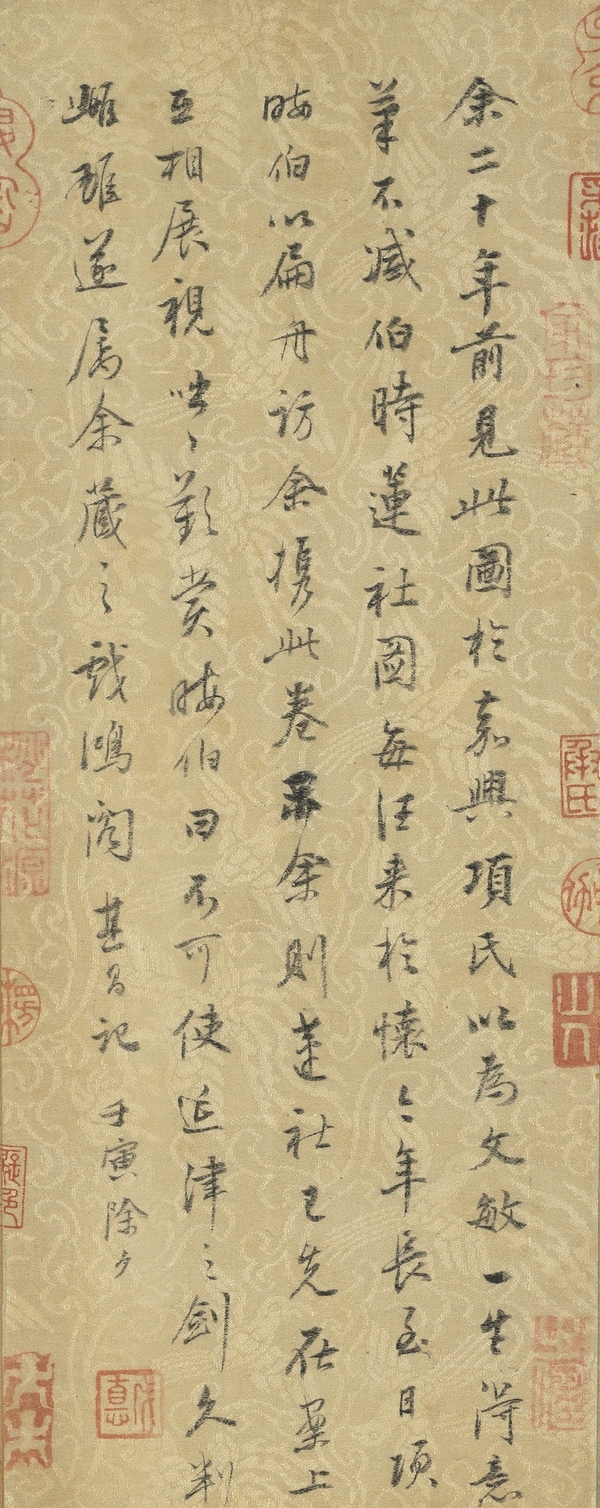 余二十年前見此圖於嘉興項氏以為文敏一生得意
筆不減伯時蓮社圖每往来於懷今年長至日項
晦伯以扁舟訪余携此卷示余則蓮社已先在案上
互相展視咄々歎賞晦伯曰不可使延津之劍久判
雌雄遂属余藏之戲鴻閣其昌記
壬寅除夕